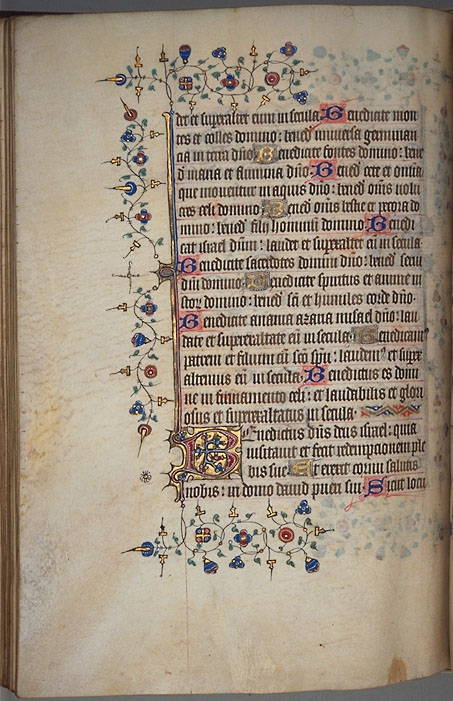 det et superaltet eum in secula. Benedicite mon
tes et colles domino: bened universa germinan
cia in terra dno. Benedicite fontes domino: bene
d maria et flumina dno. Bened cete et omnia
que moventur in aquis dno: bened oms volu
cres celi domino. Bened oms bestie et pecora do
mino: bened filij hominum domino. Benedi
cat israel dnm: laudet et superaltet eu in secula.
Benedicite sacerdotes domini dno: bened servi
dni domino. Benedicite spiritus et anime iu
stor domino: bened sci et humiles corde dno.
Benedicite anania azaria misael dno: lau
date et superexaltate eu in secula. Benedicam
patrem et filium cu sco spu: laudem et supex
altemus eu in secula. Benedictus es domi
ne in firmamento celi: et laudabilis et glori
osus et superexaltatus in secula.
Benedictus dns deus israel: quia
visitavit et fecit redempcionem ple
bis sue. Et erexit cornu salutis
nobis: in domo david pueri sui. Sicut locu